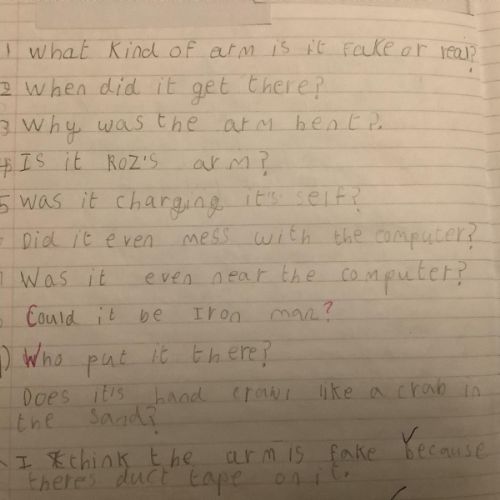 1 What kind of arm is it fake or real?
2 When did it get there?
3 Why was the arm bent?.
4 Is it ROZ'S arm?
5 Was it charging it's self?
Did it even mess with the computer?
Was it even near the computer?
Could it be Iron man?
Who put it there?
Does it's hand crawl like a crab in
the sand?
I think the arm is fake because
theres duct tape on it.